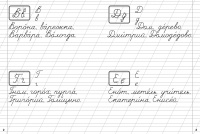 Вв
В
в
Ворона, варежка.
Варвара. Вологда.
Дд
Д
д
Дом, дерево.
Дмитрий. Домодедово.
Гг
Г
г
Гном, горка,
Григорий.
Ее
Е
е
Енот, метель, учитель.
Екатерина. Елисей.